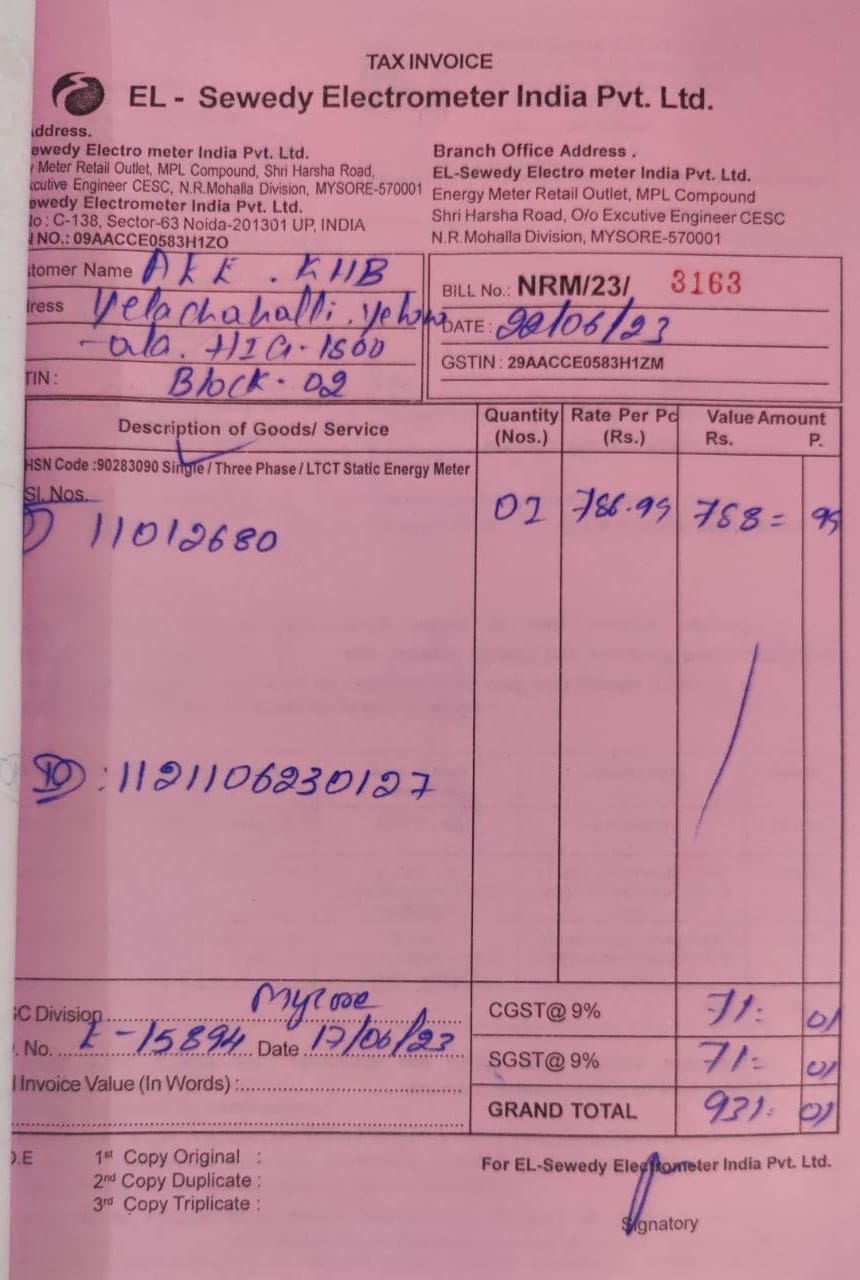 TAX INVOICE
EL - Sewedy Electrometer India Pvt. Ltd.
ddress.
ewedy Electro meter India Pvt. Ltd.
Meter Retail Outlet, MPL Compound, Shri Harsha Road,
xcutive Engineer CESC, N.R.Mohalla Division, MYSORE-570001
ewedy Electrometer India Pvt. Ltd.
No : C-138, Sector-63 Noida-201301 UP, INDIA
NO.: 09AACCE0583H1ZO
Branch Office Address .
EL-Sewedy Electro meter India Pvt. Ltd.
Energy Meter Retail Outlet, MPL Compound
Shri Harsha Road, O/o Excutive Engineer CESC
N.R.Mohalla Division, MYSORE-570001
tomer Name KHB
ress Yelachahalli
HIG-1500
TIN : Block - 02
BILL No.: NRM/23/ 3163
DATE : 22/06/23
GSTIN : 29AACCE0583H1ZM
Description of Goods/ Service Quantity (Nos.) Rate Per Pc (Rs.) Value Amount Rs. P.
HSN Code :90283090 Single / Three Phase / LTCT Static Energy Meter
Sl. Nos.
11012680 01 788.99 788= 99
: 1121106230127
C Division Mysore
. No. 15894 Date 17/06/23
Invoice Value (In Words) :
CGST@ 9% 71: 01
SGST@ 9% 71: 01
GRAND TOTAL 931: 01
.E 1st Copy Original :
2nd Copy Duplicate :
3rd Copy Triplicate :
For EL-Sewedy Electrometer India Pvt. Ltd.
Signatory